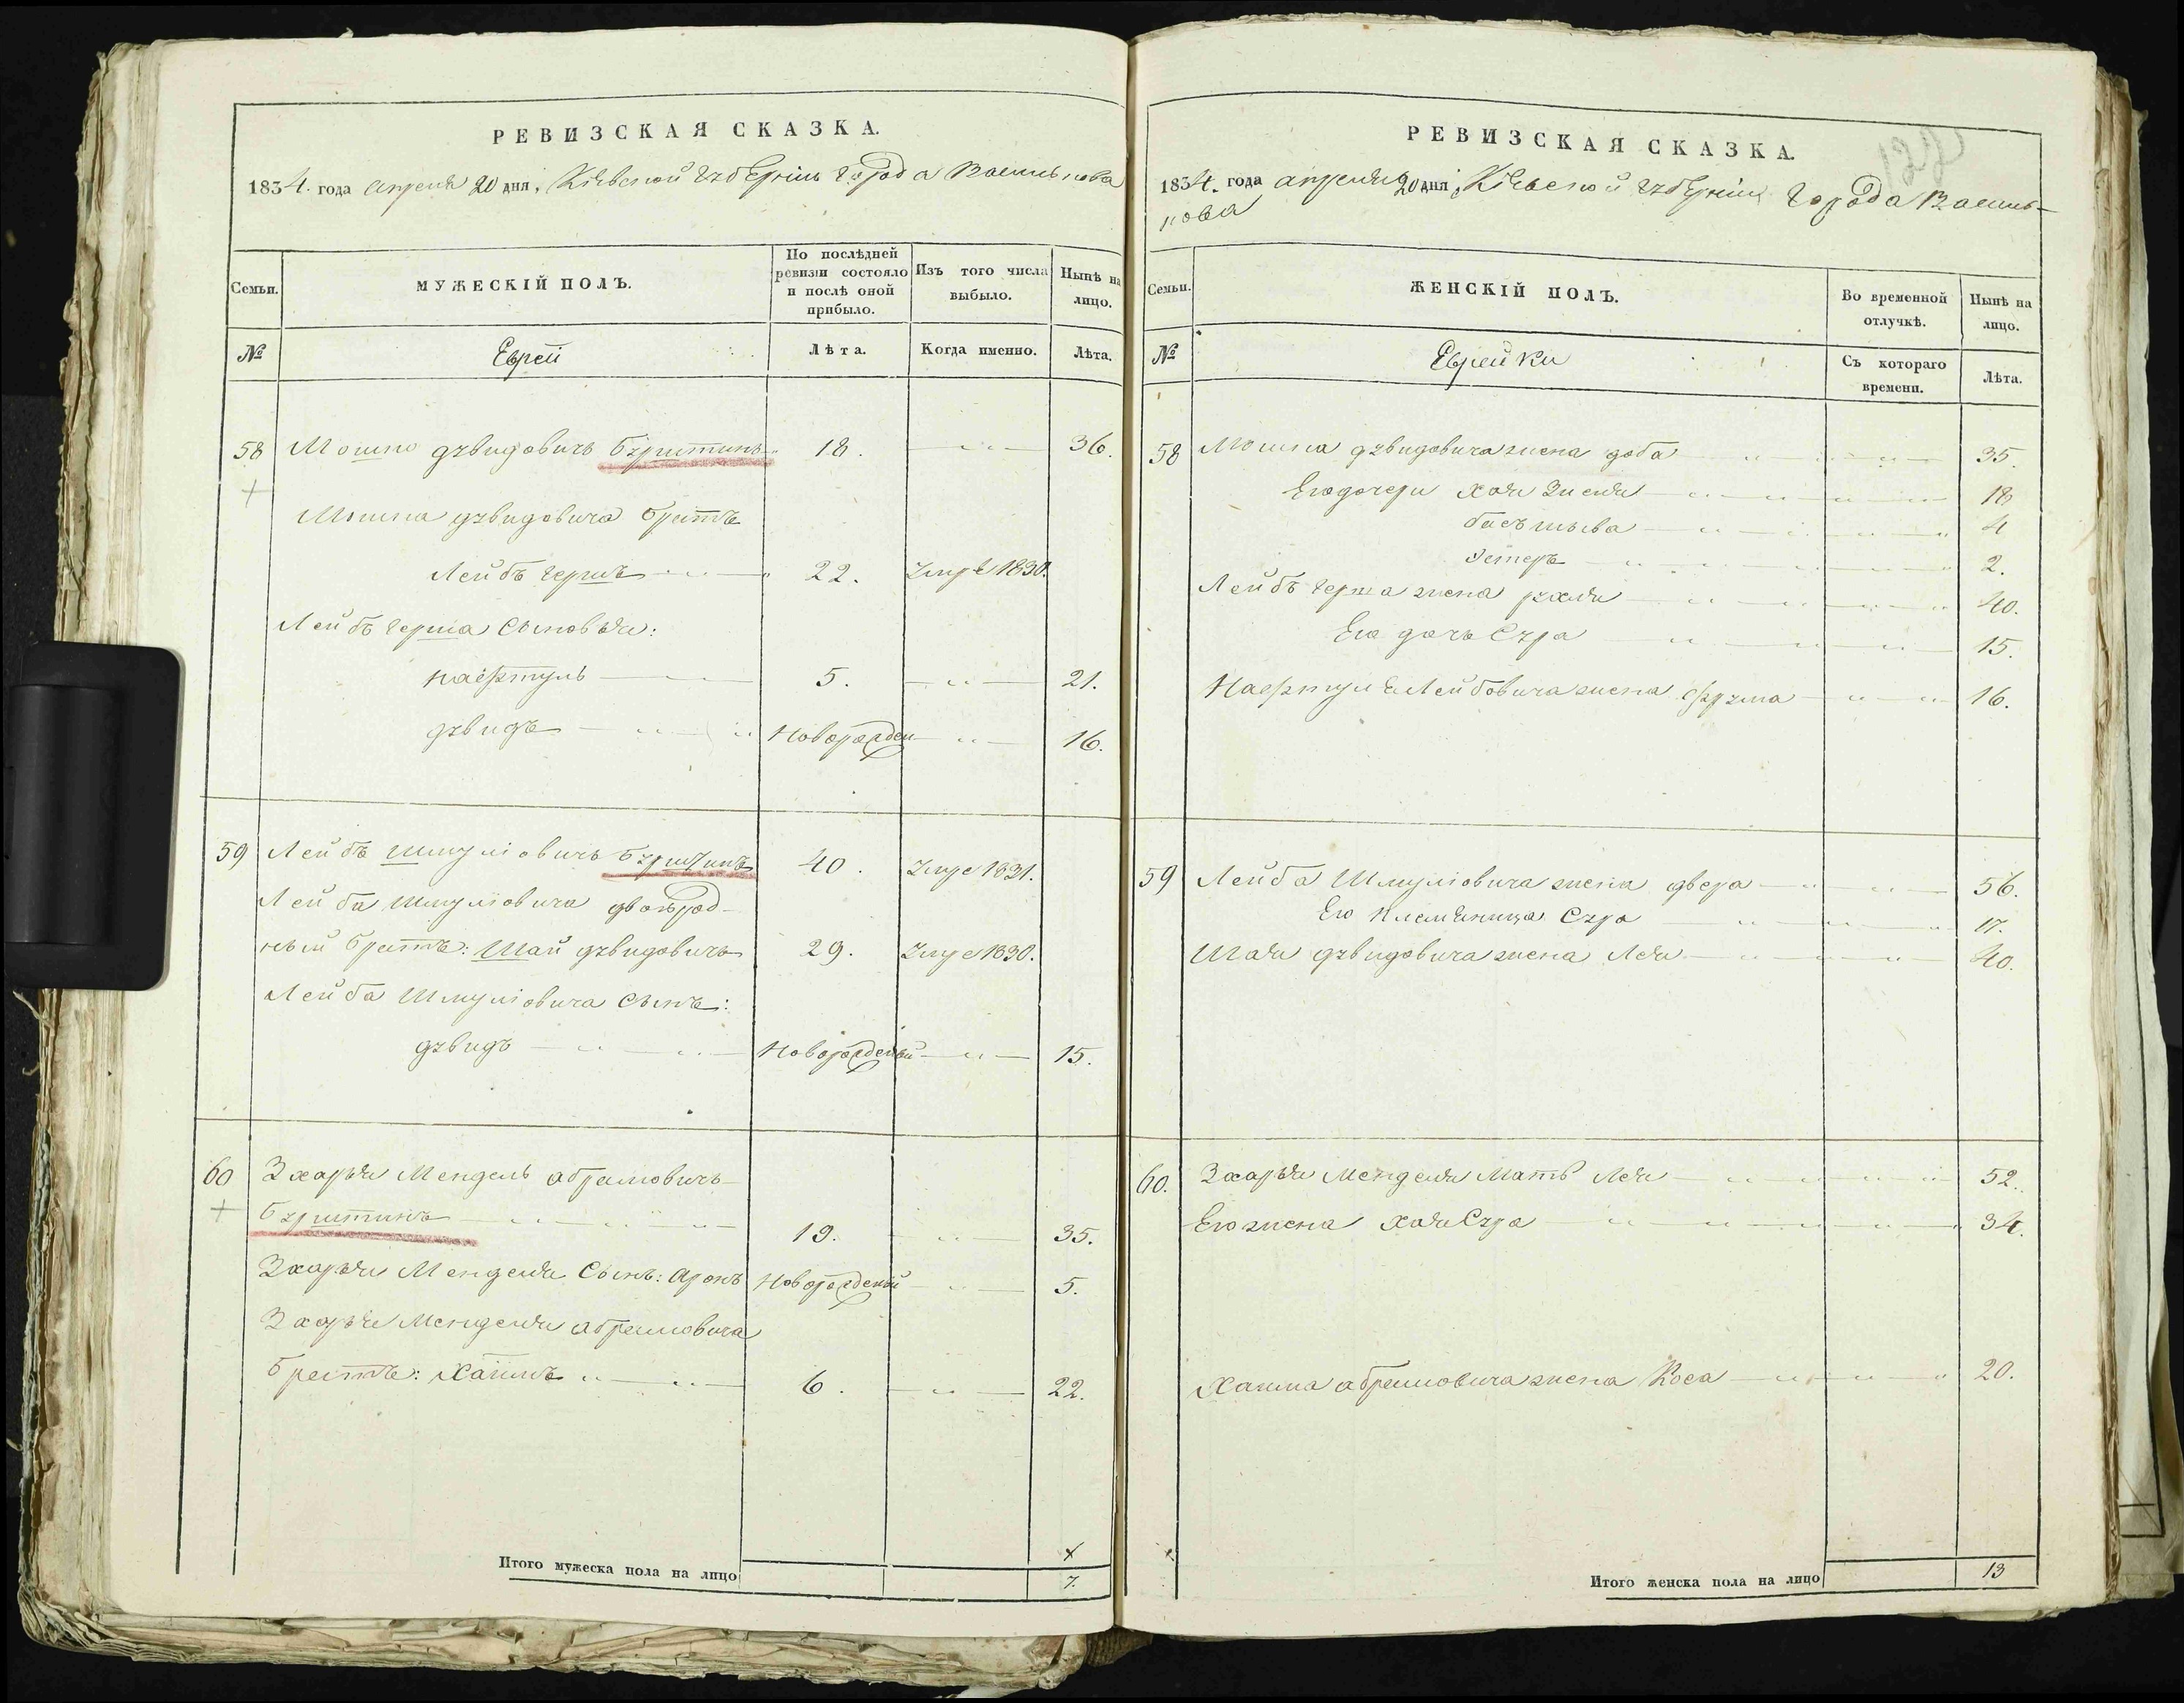 РЕВИЗСКАЯ СКАЗКА.
1834. года апреля 20 дня, Кіевской губерніи города Василькова
Семьи.
МУЖЕСКІЙ ПОЛЪ.
По послѣдней ревизіи состояло и послѣ оной прибыло.
Изъ того числа выбыло.
Нынѣ на лицо.
№
Еврей
Лѣта.
Когда именно.
Лѣта.
58 Мошко дувидовичь Буриштинъ 18. 36.
Мошка дувидовича братъ
Лейбъ гершъ 22. Умре 1830.
Лейбъ герша Сыновья:
нафтуль 5. 21.
дувидъ Новорожден 16.
59 Лейбъ Шмулiовичь Буриштинъ 40. Умре 1831.
Лейба Шмулiовича двоюрод-
ный братъ: Шай дувидовичь 29. Умре 1830.
Лейба Шмулiовича Сынъ:
дувидъ Новорожденый 15.
60 Зхарья Мендель абрамовичь
Буриштинъ 19. 35.
Зхарья Менделя Сынъ: аронъ Новорожденый 5.
Зхарья Менделя абрамовича
братъ: Хаимъ 6. 22.
Итого мужеска пола на лицо 7.
РЕВИЗСКАЯ СКАЗКА.
1834. года апреля 20 дня, Кіевской губерніи города Василь-
кова
Семьи.
ЖЕНСКІЙ ПОЛЪ.
Во временной отлучкѣ.
Нынѣ на лицо.
№
Еврейки
Съ котораго времени.
Лѣта.
58 Мошка дувидовича жена доба 35.
Его дочери Хая 18
4
Эстеръ 2.
Лейбъ герша жена рухля 40.
Его дочь Сура 15.
Нафтулѣ Лейбовича жена фрума 16.
59 Лейба Шмулiовича жена двера 56.
Его племѣница Сура 17.
Шая дувидовича жена Лея 40.
60. Зхарья Менделя Мать Лея 52.
Его жена хая Сура 34.
Хаима абрамовича жена Роса 20.
Итого женска пола на лицо 13